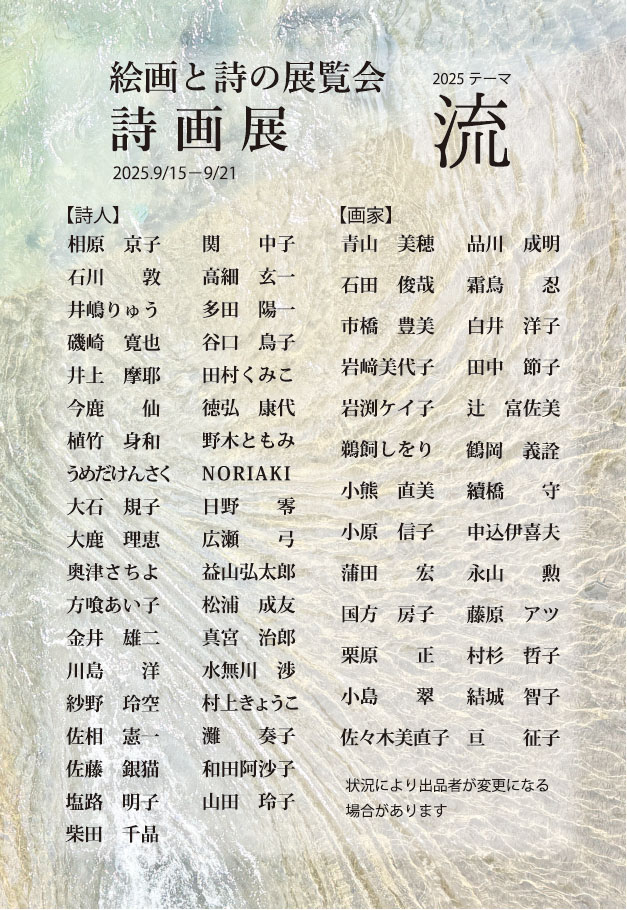 絵画と詩の展覧会
詩画展
2025.9/15－9/21
2025 テーマ
流
【詩人】
相原　京子
石川　　敦
井嶋りゅう
磯崎　寛也
井上　摩耶
今鹿　　仙
植竹　身和
うめだけんさく
大石　規子
大鹿　理恵
奥津さちよ
方喰あい子
金井　雄二
川島　　洋
紗野　玲空
佐相　憲一
佐藤　銀猫
塩路　明子
柴田　千晶
関　　中子
高細　玄一
多田　陽一
谷口　鳥子
田村くみこ
徳弘　康代
野木ともみ
NORIAKI
日野　　零
広瀬　　弓
益山弘太郎
松浦　成友
真宮　治郎
水無川　渉
村上きょうこ
灘　　奏子
和田阿沙子
山田　玲子
【画家】
青山　美穂
石田　俊哉
市橋　豊美
岩﨑美代子
岩渕ケイ子
鵜飼しをり
小熊　直美
小原　信子
蒲田　　宏
国方　房子
栗原　　正
小島　　翠
佐々木美直子
品川　成明
霜鳥　　忍
白井　洋子
田中　節子
辻　富佐美
鶴岡　義詮
續橋　　守
中込伊喜夫
永山　　勲
藤原　アツ
村杉　哲子
結城　智子
亘　　征子
状況により出品者が変更になる
場合があります